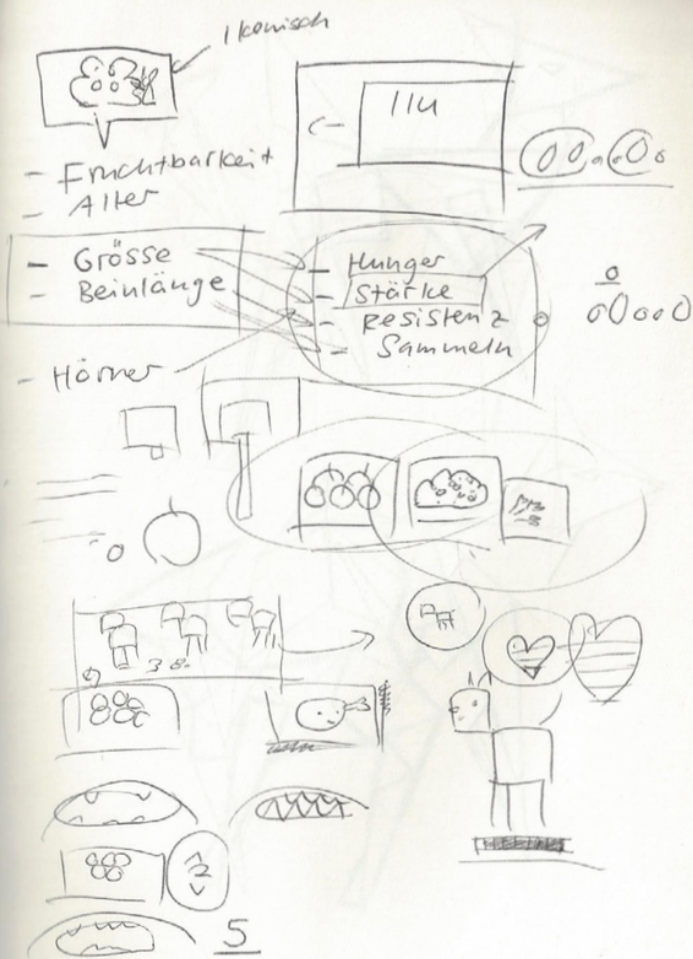 Ikonisch
- Fruchtbarkeit
- Alter
- Grösse
- Beinlänge
- Hörner
- Hunger
- Stärke
- Resistenz
- Sammeln
5